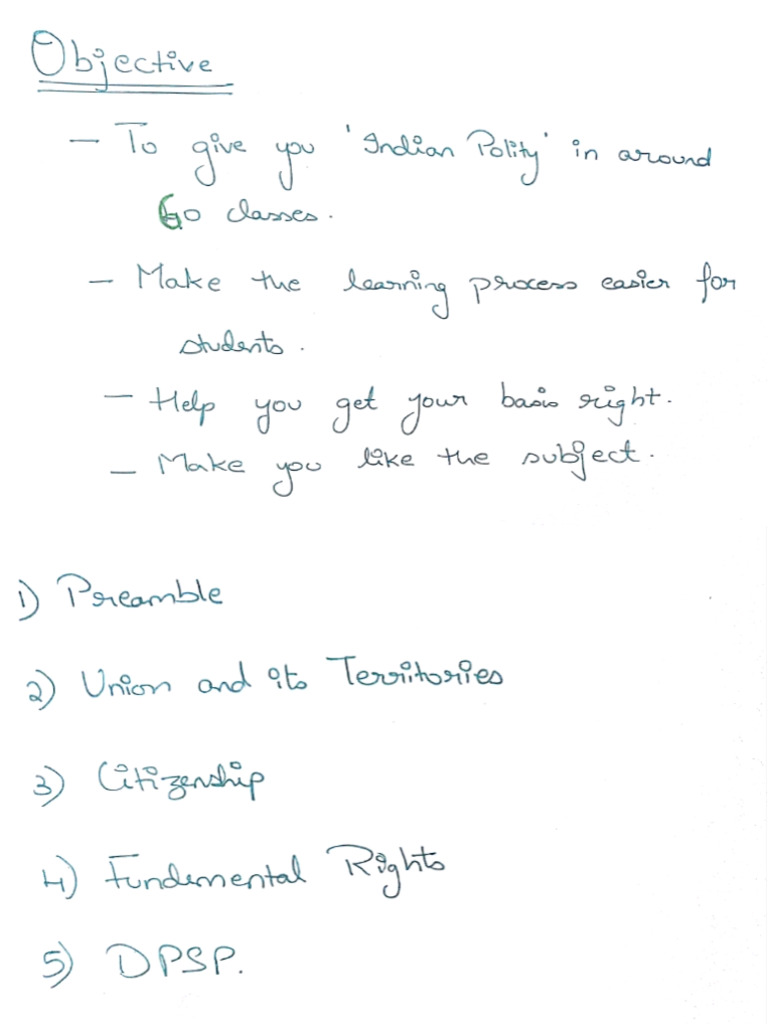 Objective
- To give you 'Indian Polity' in around
60 classes.
- Make the learning process easier for
students.
- Help you get your basis right.
- Make you like the subject.
1) Preamble
2) Union and its Territories
3) Citizenship
4) Fundemental Rights
5) DPSP.